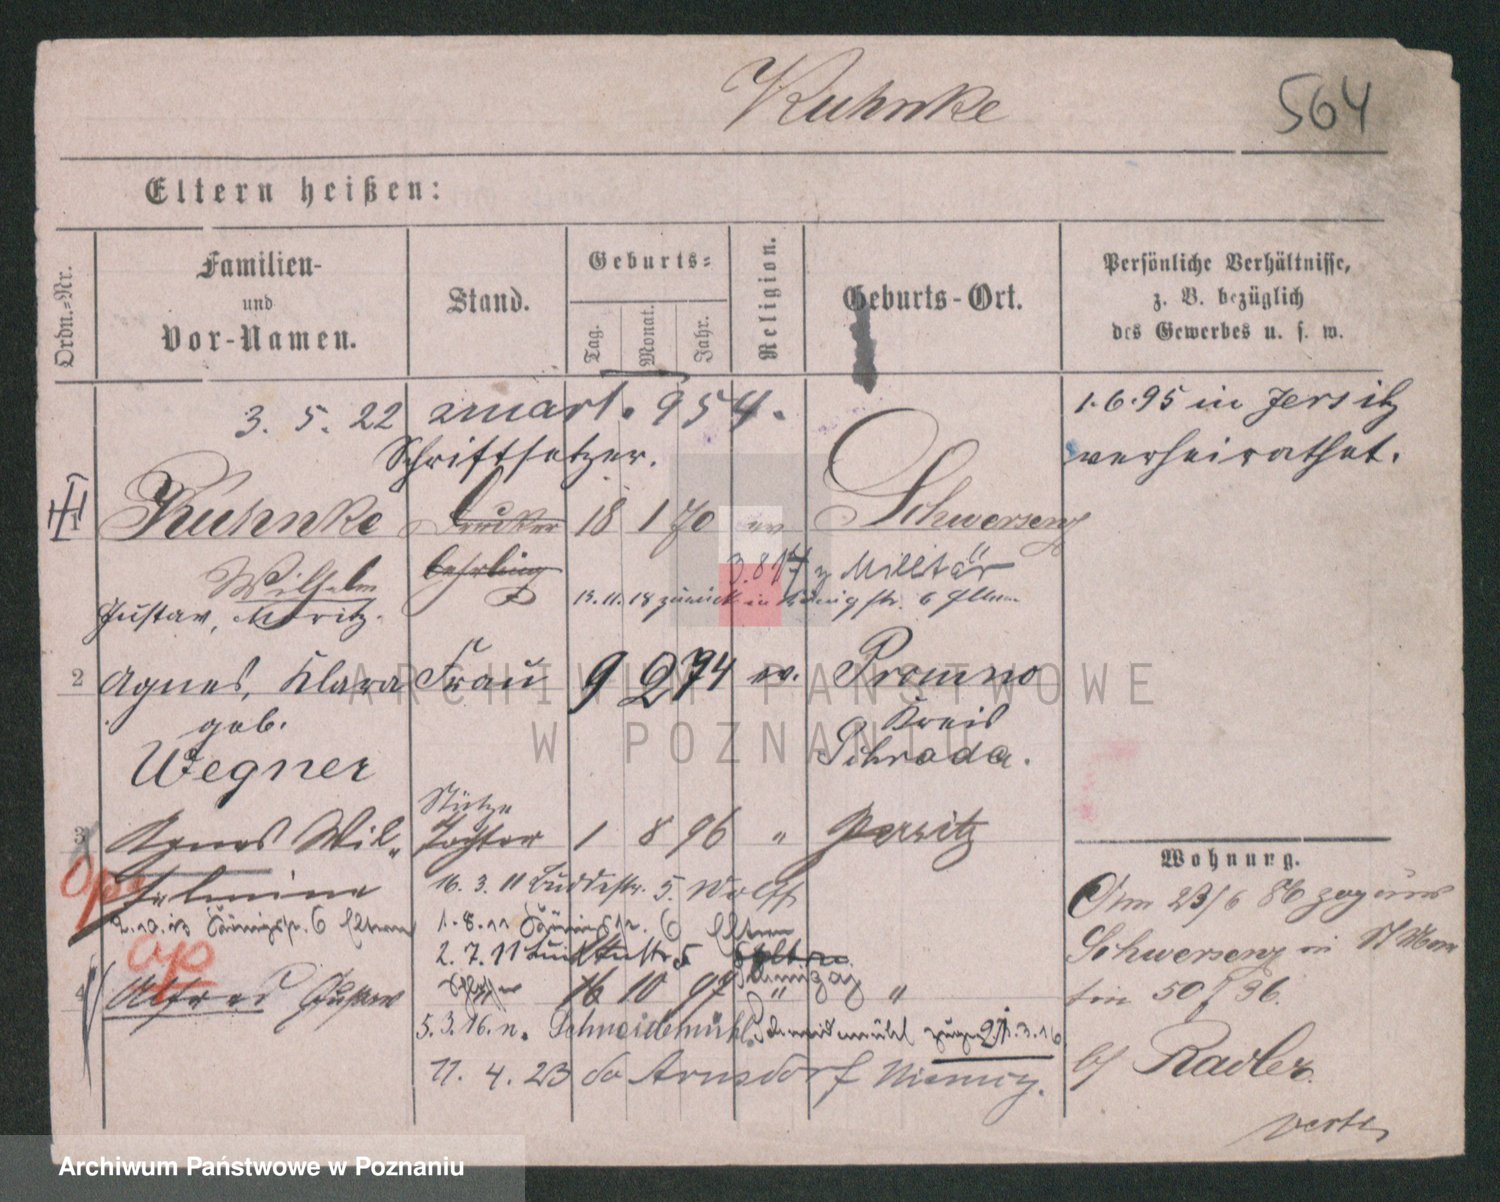 Kuhnke
564
Eltern heißen:
Ordn.-Nr.
Familien-
und
Vor-Namen.
Stand.
Geburts-
Tag.
Monat.
Jahr.
Religion.
Geburts-Ort.
Persönliche Verhältnisse,
z. B. bezüglich
des Gewerbes u. s. w.
3. 5. 22 zmarł. 954.
1.6.95 in Jersitz
verheirathet.
Schriftsetzer.
1 Kuhnke Drucker 18 1 70 ev Schwersenz
Lehrling
Wilhelm
3.8 17 z Militär
Gustav, Moritz.
13.11.18 zurück in Königstr. 6 Eltern
2 Agnes, Klara Frau 9 2 74 ev. Promno
geb.
Kreis
Wegner
Schroda.
Stütze
3 Agnes Wil- Tochter 1 8 96 " Jersitz
helmine
16. 3. 11 Buddestr. 5. Wolff
Königstr. 6 Eltern
1.8.11 Königstr. 6 Eltern
2. 7. 11
op
op
4 Alfred Gustav 16 10 97 " "
5.3.16. n. Schneidemühl. Schneidemühl 21.3.16
11. 4. 23 do Arnsdorf Niemcy.
Wohnung.
Am 23/6 86 zog aus
Schwersenz in St Mar
tin 50 J 96.
bf Radler.
verte
ARCHIWUM PAŃSTWOWE
W POZNANIU
Archiwum Państwowe w Poznaniu